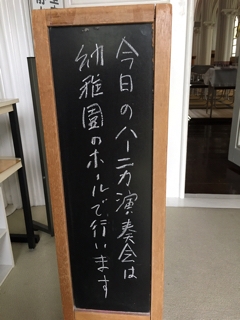 今日のハーニカ演奏会は
幼稚園のホールで行います